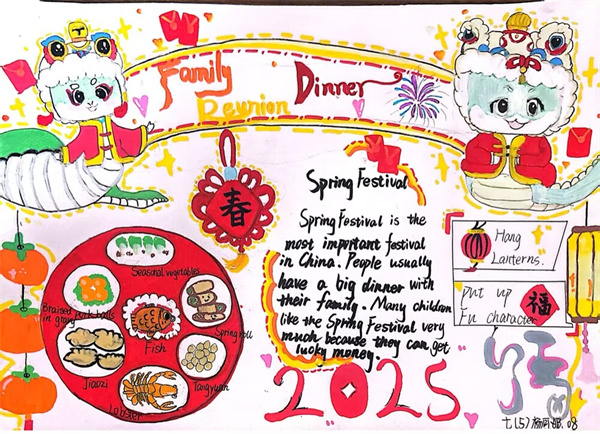 Family
Reunion
Dinner
春
Spring Festival
Spring Festival is the
most important festival
in China. People usually
have a big dinner with
their family. Many children
like the Spring Festival very
much because they can get
lucky money.
Hang
Lanterns.
put up
福
Fu character
Seasonal vegetables
Braised
in gravy
balls
Spring roll
Fish
Jiaozi
Tangyuan
Lobster
2025
七(5)
08